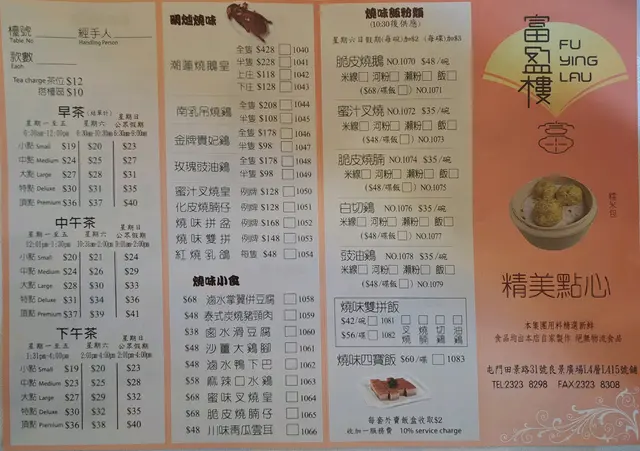 檯號
Table No
經手人
Handing Person
數
Each
Tea charge 茶位 $12
搭檯區 $10
早茶 (結單計)
星期一至五 星期六 星期日 公眾假期
小點 Small $19 $20 $23
中點 Medium $24 $25 $27
大點 Large $27 $28 $31
特點 Deluxe $30 $31 $35
頂點 Premium $36 $37 $40
中午茶
星期一至五 星期六 星期日 公眾假期
小點 Small $20 $21 $24
中點 Medium $24 $26 $29
大點 Large $28 $30 $33
特點 Deluxe $31 $34 $36
頂點 Premium $37 $39 $41
下午茶
星期一至五 星期六 星期日 公眾假期
1:31pm-4:00pm 2:01pm-4:00pm 2:01pm-4:00pm
小點 Small $19 $20 $23
中點 Medium $23 $25 $28
大點 Large $27 $29 $32
特點 Deluxe $30 $32 $35
頂點 Premium $36 $38 $40
明爐燒味
潮蓮燒鵝皇
全隻 $428 □ 1040
半隻 $228 □ 1041
上庄 $118 □ 1042
下庄 $122 □ 1043
南乳吊燒鷄
全隻 $208 □ 1044
半隻 $108 □ 1045
金牌貴妃鷄
全隻 $178 □ 1046
半隻 $98 □ 1047
玫瑰豉油鷄
全隻 $178 □ 1048
半隻 $98 □ 1049
蜜汁叉燒皇 例牌 $128 □ 1050
化皮燒腩仔 例牌 $128 □ 1051
燒味拼盆 例牌 $168 □ 1052
燒味雙拼 例牌 $148 □ 1053
紅燒乳鴿 每隻 $48 □ 1054
燒味小食
$68 滷水掌翼併豆腐 □ 1058
$48 泰式炭燒豬頸肉 □ 1059
$38 鹵水滑豆腐 □ 1060
$48 沙薑大鷄腳 □ 1061
$48 滷水鴨下巴 □ 1062
$58 麻辣口水鷄 □ 1063
$68 蜜味叉燒皇 □ 1064
$68 脆皮燒腩仔 □ 1065
$48 川味青瓜雲耳 □ 1066
燒味飯粉麵
(10:30後供應)
星期六日假期(每碗)加$2 (每碟)加$3
脆皮燒鵝 NO.1070 $48/碗
米線□ 河粉□ 瀨粉□ 飯□
($68/碟飯□) NO.1071
蜜汁叉燒 NO.1072 $35/碗
米線□ 河粉□ 瀨粉□ 飯□
($48/碟飯□) NO.1073
脆皮燒腩 NO.1074 $35/碗
米線□ 河粉□ 瀨粉□ 飯□
($48/碟飯□) NO.1075
白切鷄 NO.1076 $35/碗
米線□ 河粉□ 瀨粉□ 飯□
($48/碟飯□) NO.1077
豉油鷄 NO.1078 $35/碗
米線□ 河粉□ 瀨粉□ 飯□
($48/碟飯□) NO.1079
燒味雙拼飯
$42/碗□ 1081
$56/碟□ 1082
叉燒 燒腩 切鷄 油鷄
燒味四寶飯 $60/碟□ 1083
每套外賣飯盒收取$2
收加一服務費 10% service charge
富盈樓
FU YING LAU
富
精美點心
本集團用料精選新鮮
食品均由本店自家製作 絕無物流食品
屯門田景路31號良景廣場L4層L415號舖
TEL:2323 8298 FAX:2323 8308